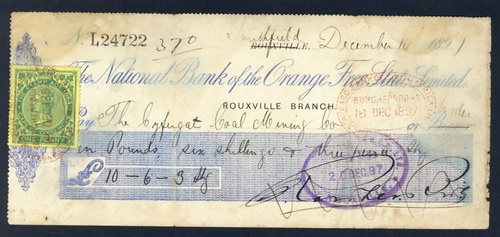 No. L24722 370 Smithfield ROUXVILLE, December 16 1897
The National Bank of the Orange Free State Limited
ROUXVILLE BRANCH.
Pay The Cyfergat Coal Mining Co or Order
Ten Pounds six shillings & three pence Stg
£ 10-6-3 Stg
ONE PENNY
18 DEC 1897
20 DEC. 97